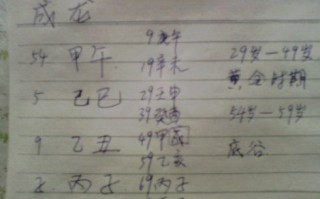 成龙
54 甲午
5 己巳
9 乙丑
2 丙子
9庚午
19辛未
29壬申
39癸酉
49甲戌
59乙亥
69丙子
29岁一49岁
黄金时期
54岁一59岁
底谷